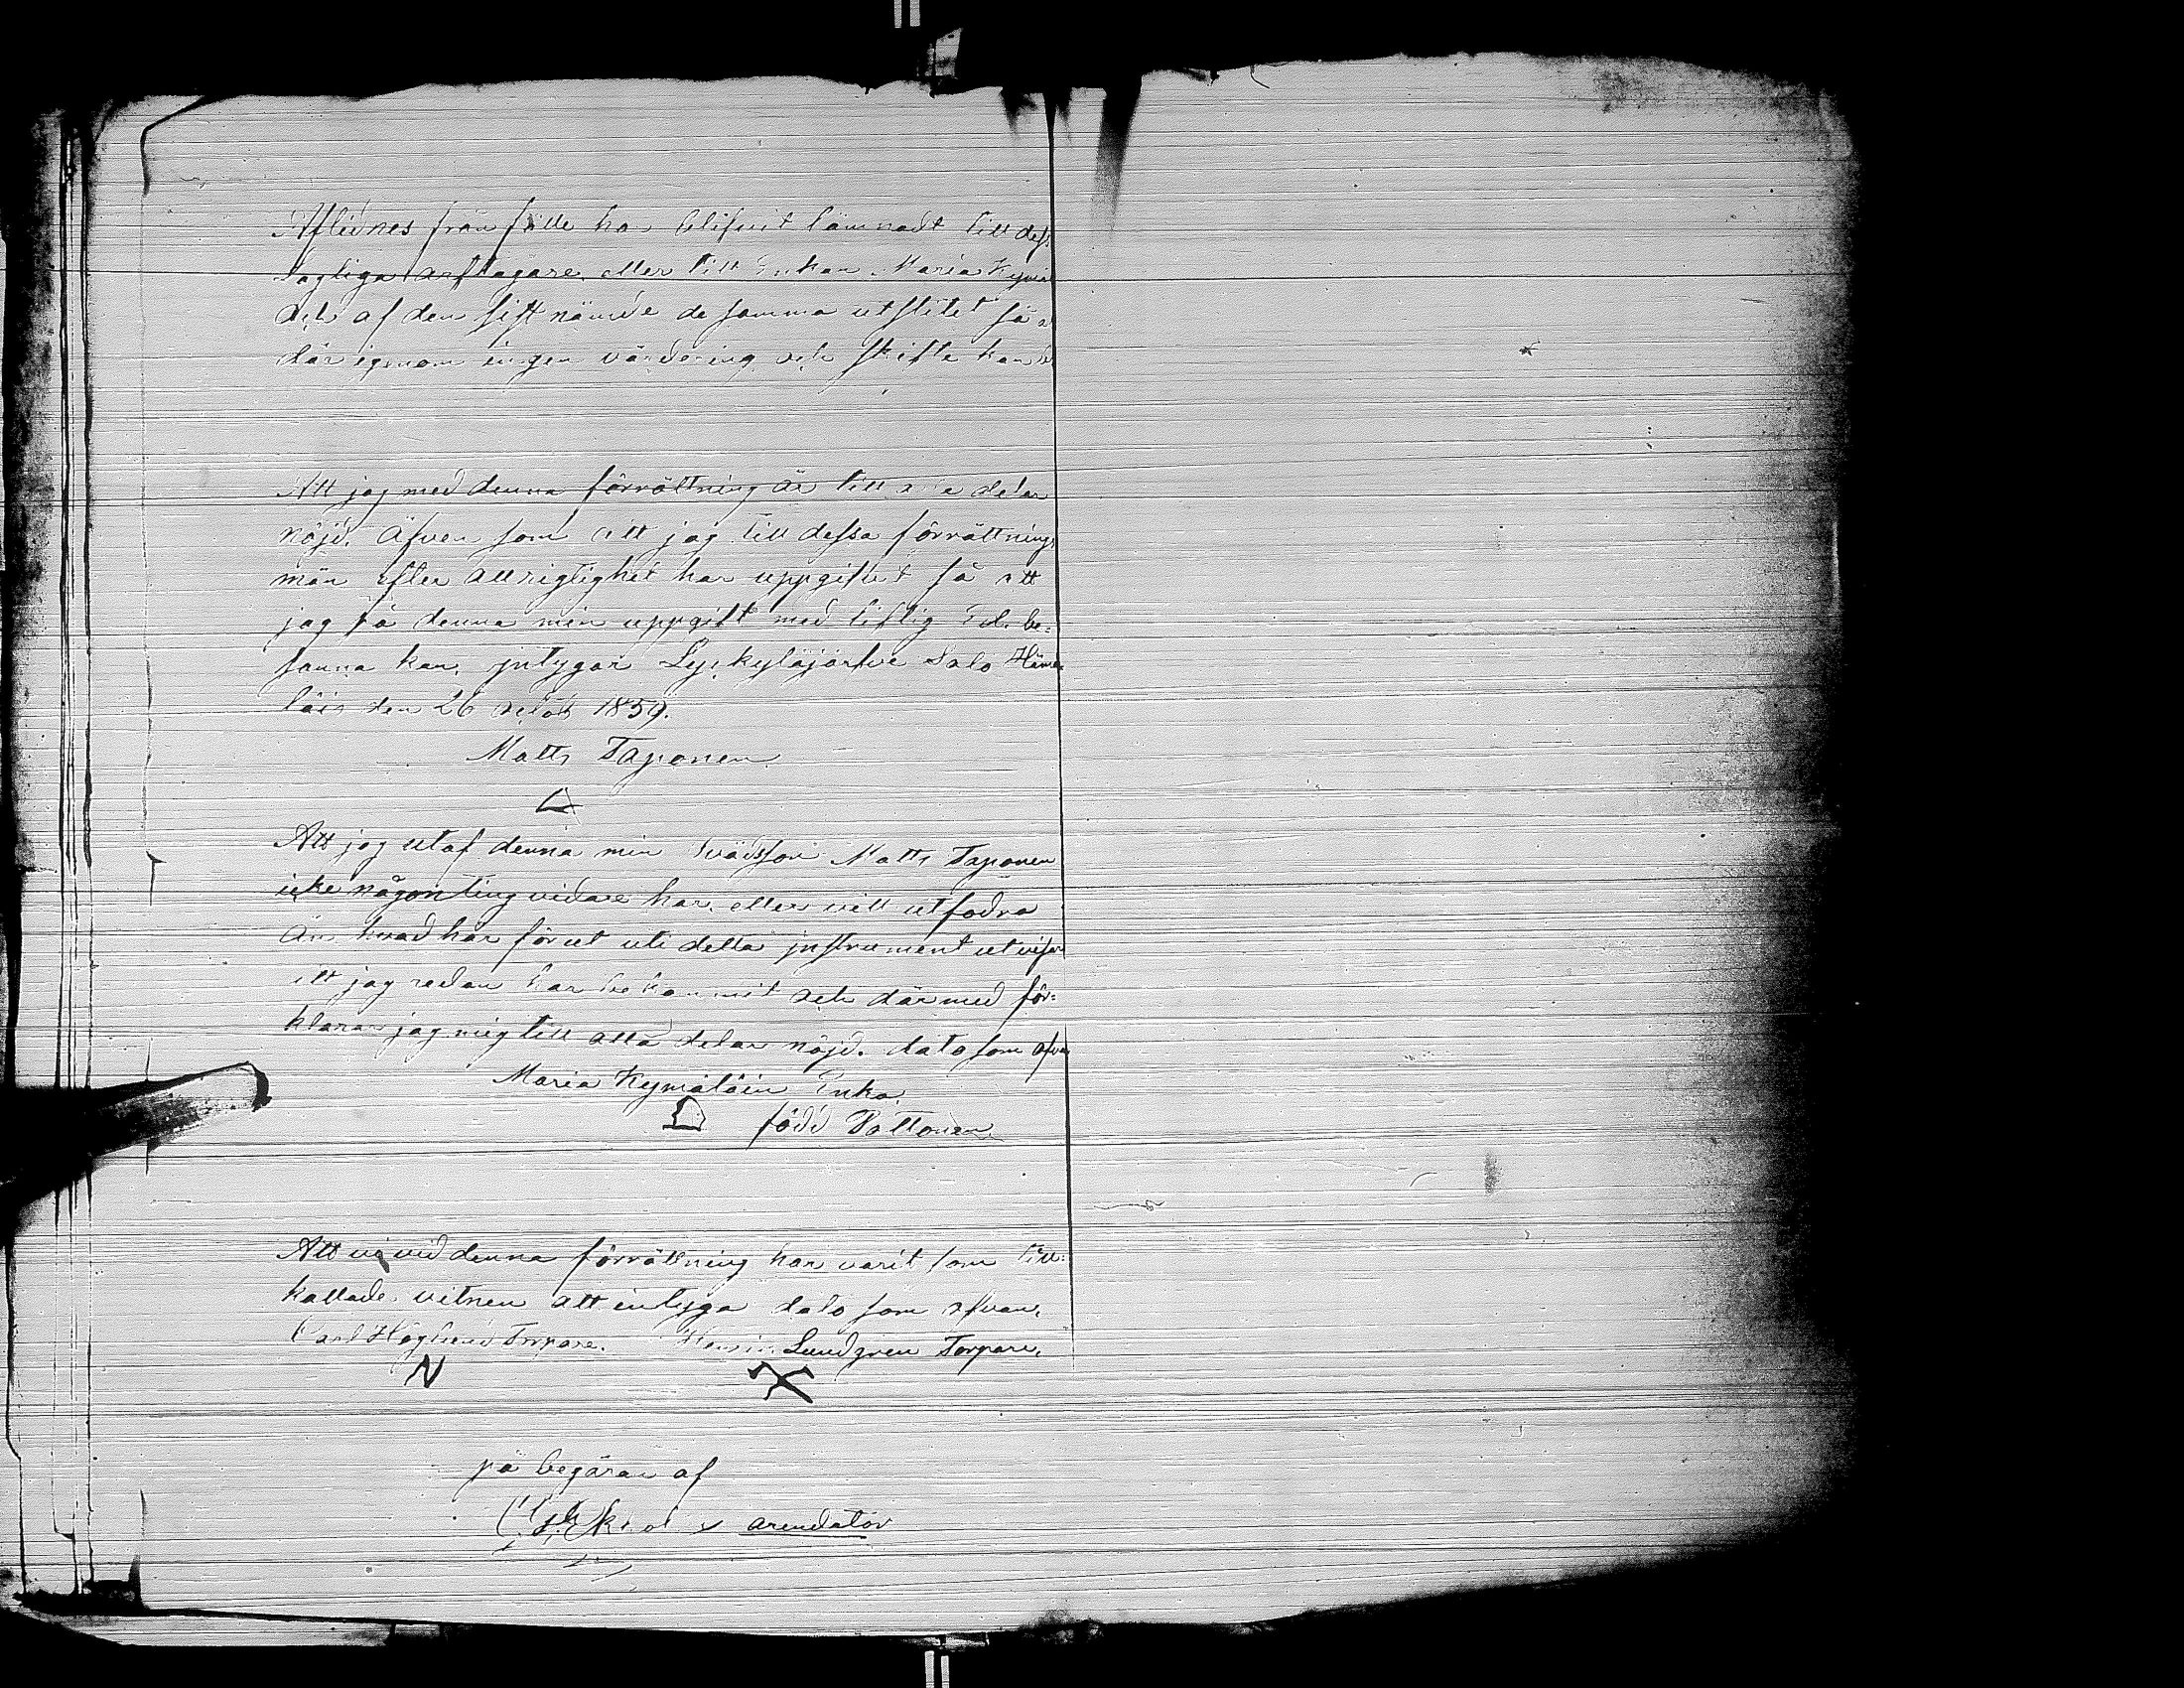 Aflidnes från fälle har blifvit lämnadt till dess
lagliga arftagare eller till Enkan Maria Kymä
och af den sist nämde de samma utslitet så a
där igenom ingen värdering och skifte kan
Att jag med denna förrättning är till alla delar
nöjd. Äfven som att jag till dessa förrättnings
män efter all rigtighet har uppgifvit så att
jag på denna min uppgift med liflig Ed. be=
sanna kan. jntygar Lyckyläjärlve Salo Häme
läis den 26 octob 1859.
Matts Taponen
Att jag utaf denna min Svädsson Matts Taponen
icke någon ting vidare har. eller vill utfodra
än hvad här förut uti detta jnstrument utvisar
att jag redan har bekommit och därmed för=
klarar jag mig till alla delar nöjd. dato som ofvan
Maria Kymäläin Enka.
född Pottonen
Att vi vid denna förrättning har varit som till=
kallade vitnen att intyga dato som ofvan.
Carl Höglund Torpare. Henric Lundgren Torpare.
N X
på begäran af
arendator